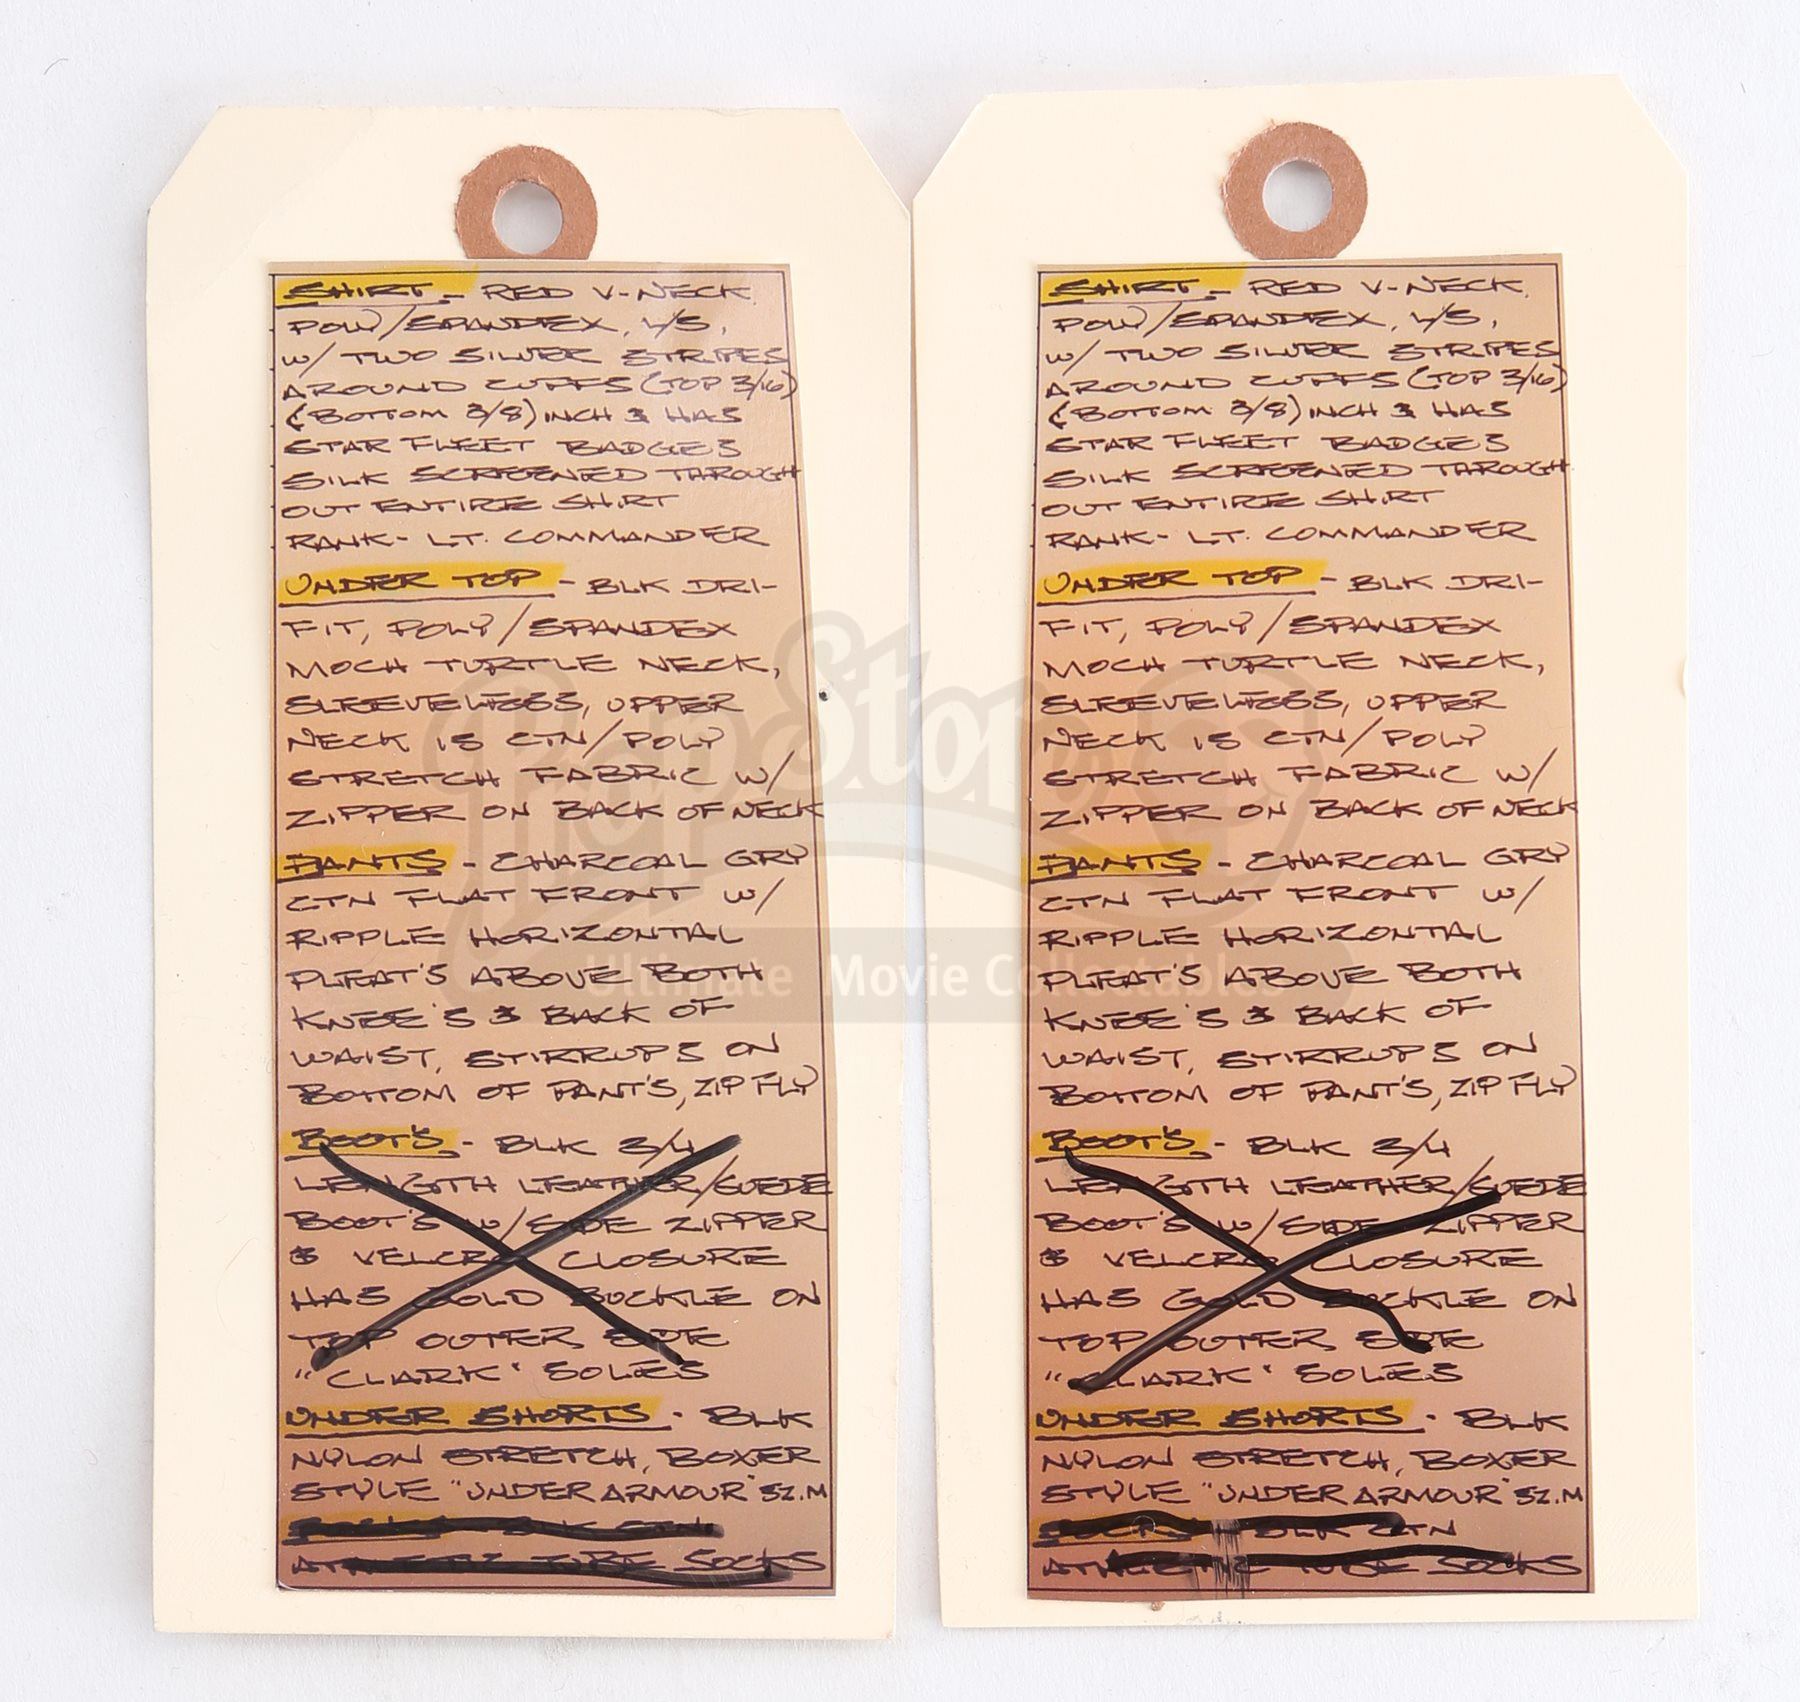 SHIRT - RED V-NECK.
POLY/SPANDEX, L/S,
W/ TWO SILVER STRIPES
AROUND CUFFS (TOP 3/16)
(BOTTOM 3/8) INCH & HAS
STAR FLEET BADGES
SILK SCREENED THROUGH
OUT ENTIRE SHIRT
RANK- LT. COMMANDER
UNDER TOP - BLK DRI-
FIT, POLY/SPANDEX
MOCH TURTLE NECK,
SLEEVELESS, UPPER
NECK IS CTN/POLY
STRETCH FABRIC W/
ZIPPER ON BACK OF NECK
PANTS - CHARCOAL GRY
CTN FLAT FRONT W/
RIPPLE HORIZONTAL
PLEAT'S ABOVE BOTH
KNEE'S & BACK OF
WAIST, STIRRUPS ON
BOTTOM OF PANT'S, ZIP FLY
BOOT'S - BLK 3/4
LENGTH LEATHER/SUEDE
BOOT'S W/SIDE ZIPPER
& VELCRO CLOSURE
HAS GOLD BUCKLE ON
TOP OUTER SIDE
"CLARK" SOLES
UNDER SHORTS - BLK
NYLON STRETCH, BOXER
STYLE "UNDER ARMOUR" SZ.M
SOCKS - BLK CTN
ATHLETIC TUBE SOCKS
SHIRT - RED V-NECK.
POLY/SPANDEX, L/S,
W/ TWO SILVER STRIPES
AROUND CUFFS (TOP 3/16)
(BOTTOM 3/8) INCH & HAS
STAR FLEET BADGES
SILK SCREENED THROUGH
OUT ENTIRE SHIRT
RANK- LT. COMMANDER
UNDER TOP - BLK DRI-
FIT, POLY/SPANDEX
MOCH TURTLE NECK,
SLEEVELESS, UPPER
NECK IS CTN/POLY
STRETCH FABRIC W/
ZIPPER ON BACK OF NECK
PANTS - CHARCOAL GRY
CTN FLAT FRONT W/
RIPPLE HORIZONTAL
PLEAT'S ABOVE BOTH
KNEE'S & BACK OF
WAIST, STIRRUPS ON
BOTTOM OF PANT'S, ZIP FLY
BOOT'S - BLK 3/4
LENGTH LEATHER/SUEDE
BOOT'S W/SIDE ZIPPER
& VELCRO CLOSURE
HAS GOLD BUCKLE ON
TOP OUTER SIDE
"CLARK" SOLES
UNDER SHORTS - BLK
NYLON STRETCH, BOXER
STYLE "UNDER ARMOUR" SZ.M
SOCKS - BLK CTN
ATHLETIC TUBE SOCKS
Prop Store
Ultimate Movie Collectables